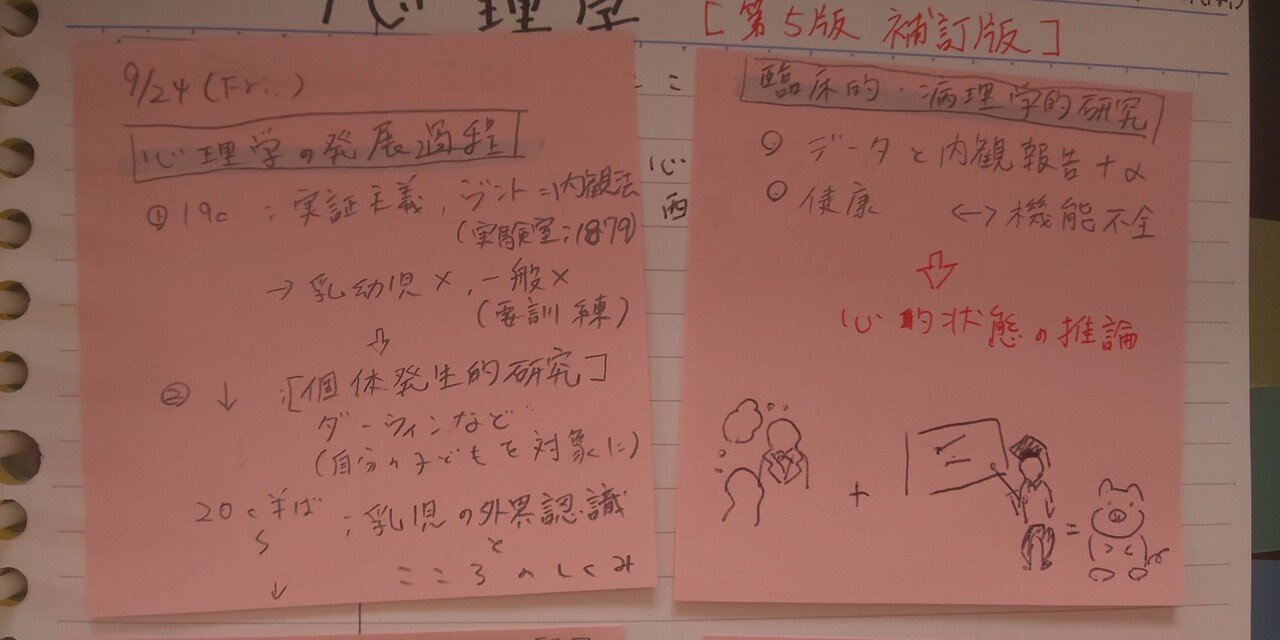 心理学
[第5版 補訂版]
9/24 (Fri.)
心理学の発展過程
① 19c ; 実証主義, ヴント=内観法
(実験室;1879)
→ 乳幼児×, 一般×
(要訓練)
⇩
② ↓ ;[個体発生的研究]
ダーウィンなど
(自分の子どもを対象に)
20c 半ば ; 乳児の外界認識
と
こころのしくみ
↓
臨床的・病理学的研究
○ データと内観報告+α
○ 健康 ↔ 機能不全
⇩
心的状態の推論
+
=
こ
心
西